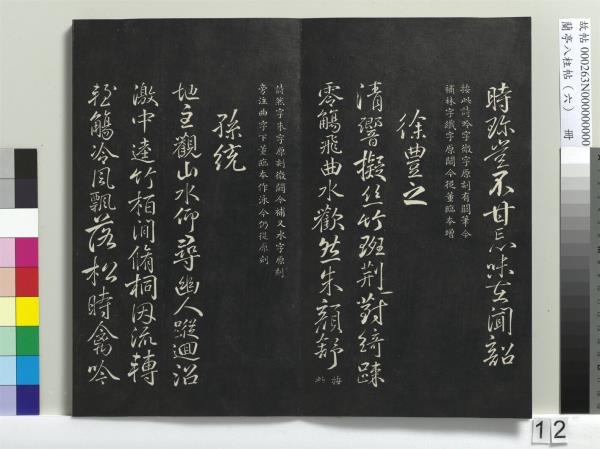 時珎豈不甘忘味在聞韶
按此詩吟字徽字原刻有闕筆今
補秣字纖字原闕今從董臨本增
徐豐之
清響擬絲竹班荊對綺疎
零觴飛曲水歡然朱顏舒
按此
詩然字朱字原刻微闕今補又水字原刻
旁注曲字下董臨本作泳今仍從原刻
孫統
地主觀山水仰尋幽人蹤迴沼
激中逵竹栢澗脩桐因流轉
輕觴冷風飄落松時禽吟
故帖 000263N000000000
蘭亭八柱帖（六） 冊
12